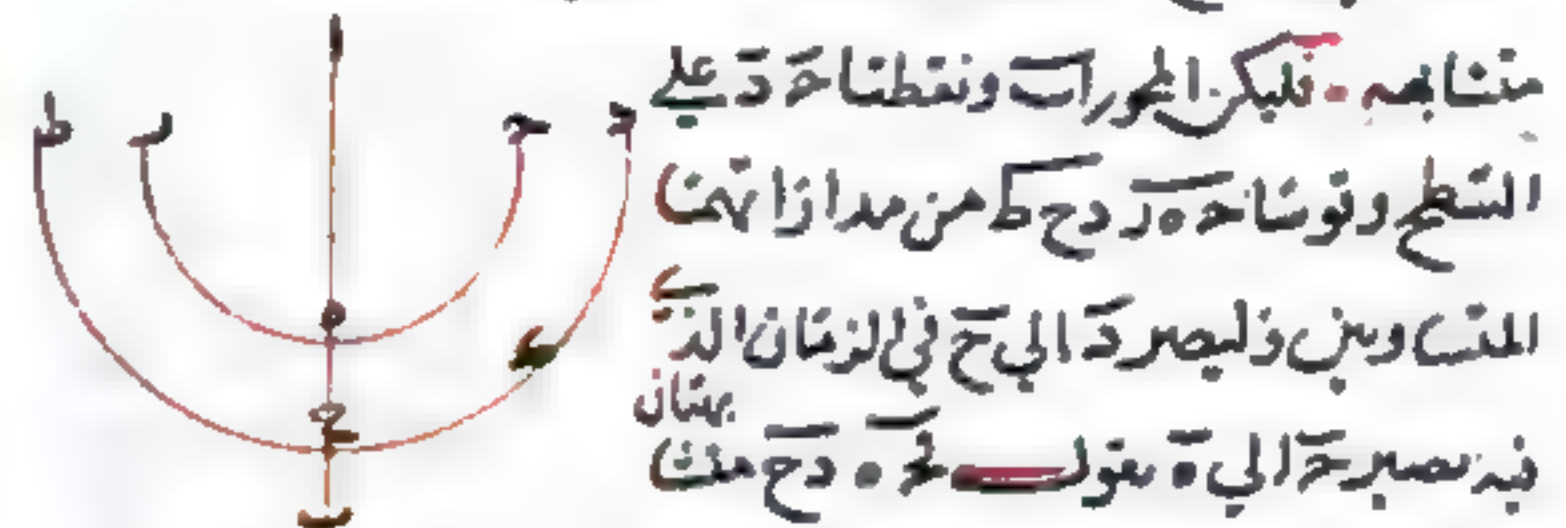 متشابهه فليكن المحور اب ونقطتا ح د علي
السطح وقوسا ح ه ر د ح ط من مداراتهما
المتساويين وليصر د الي ح في الزمان الذي
فيه يصير ح الي ه نقول فح ه د ح متشا
بهتان
ا
ط ر ح د
ه
ي
ح
ب